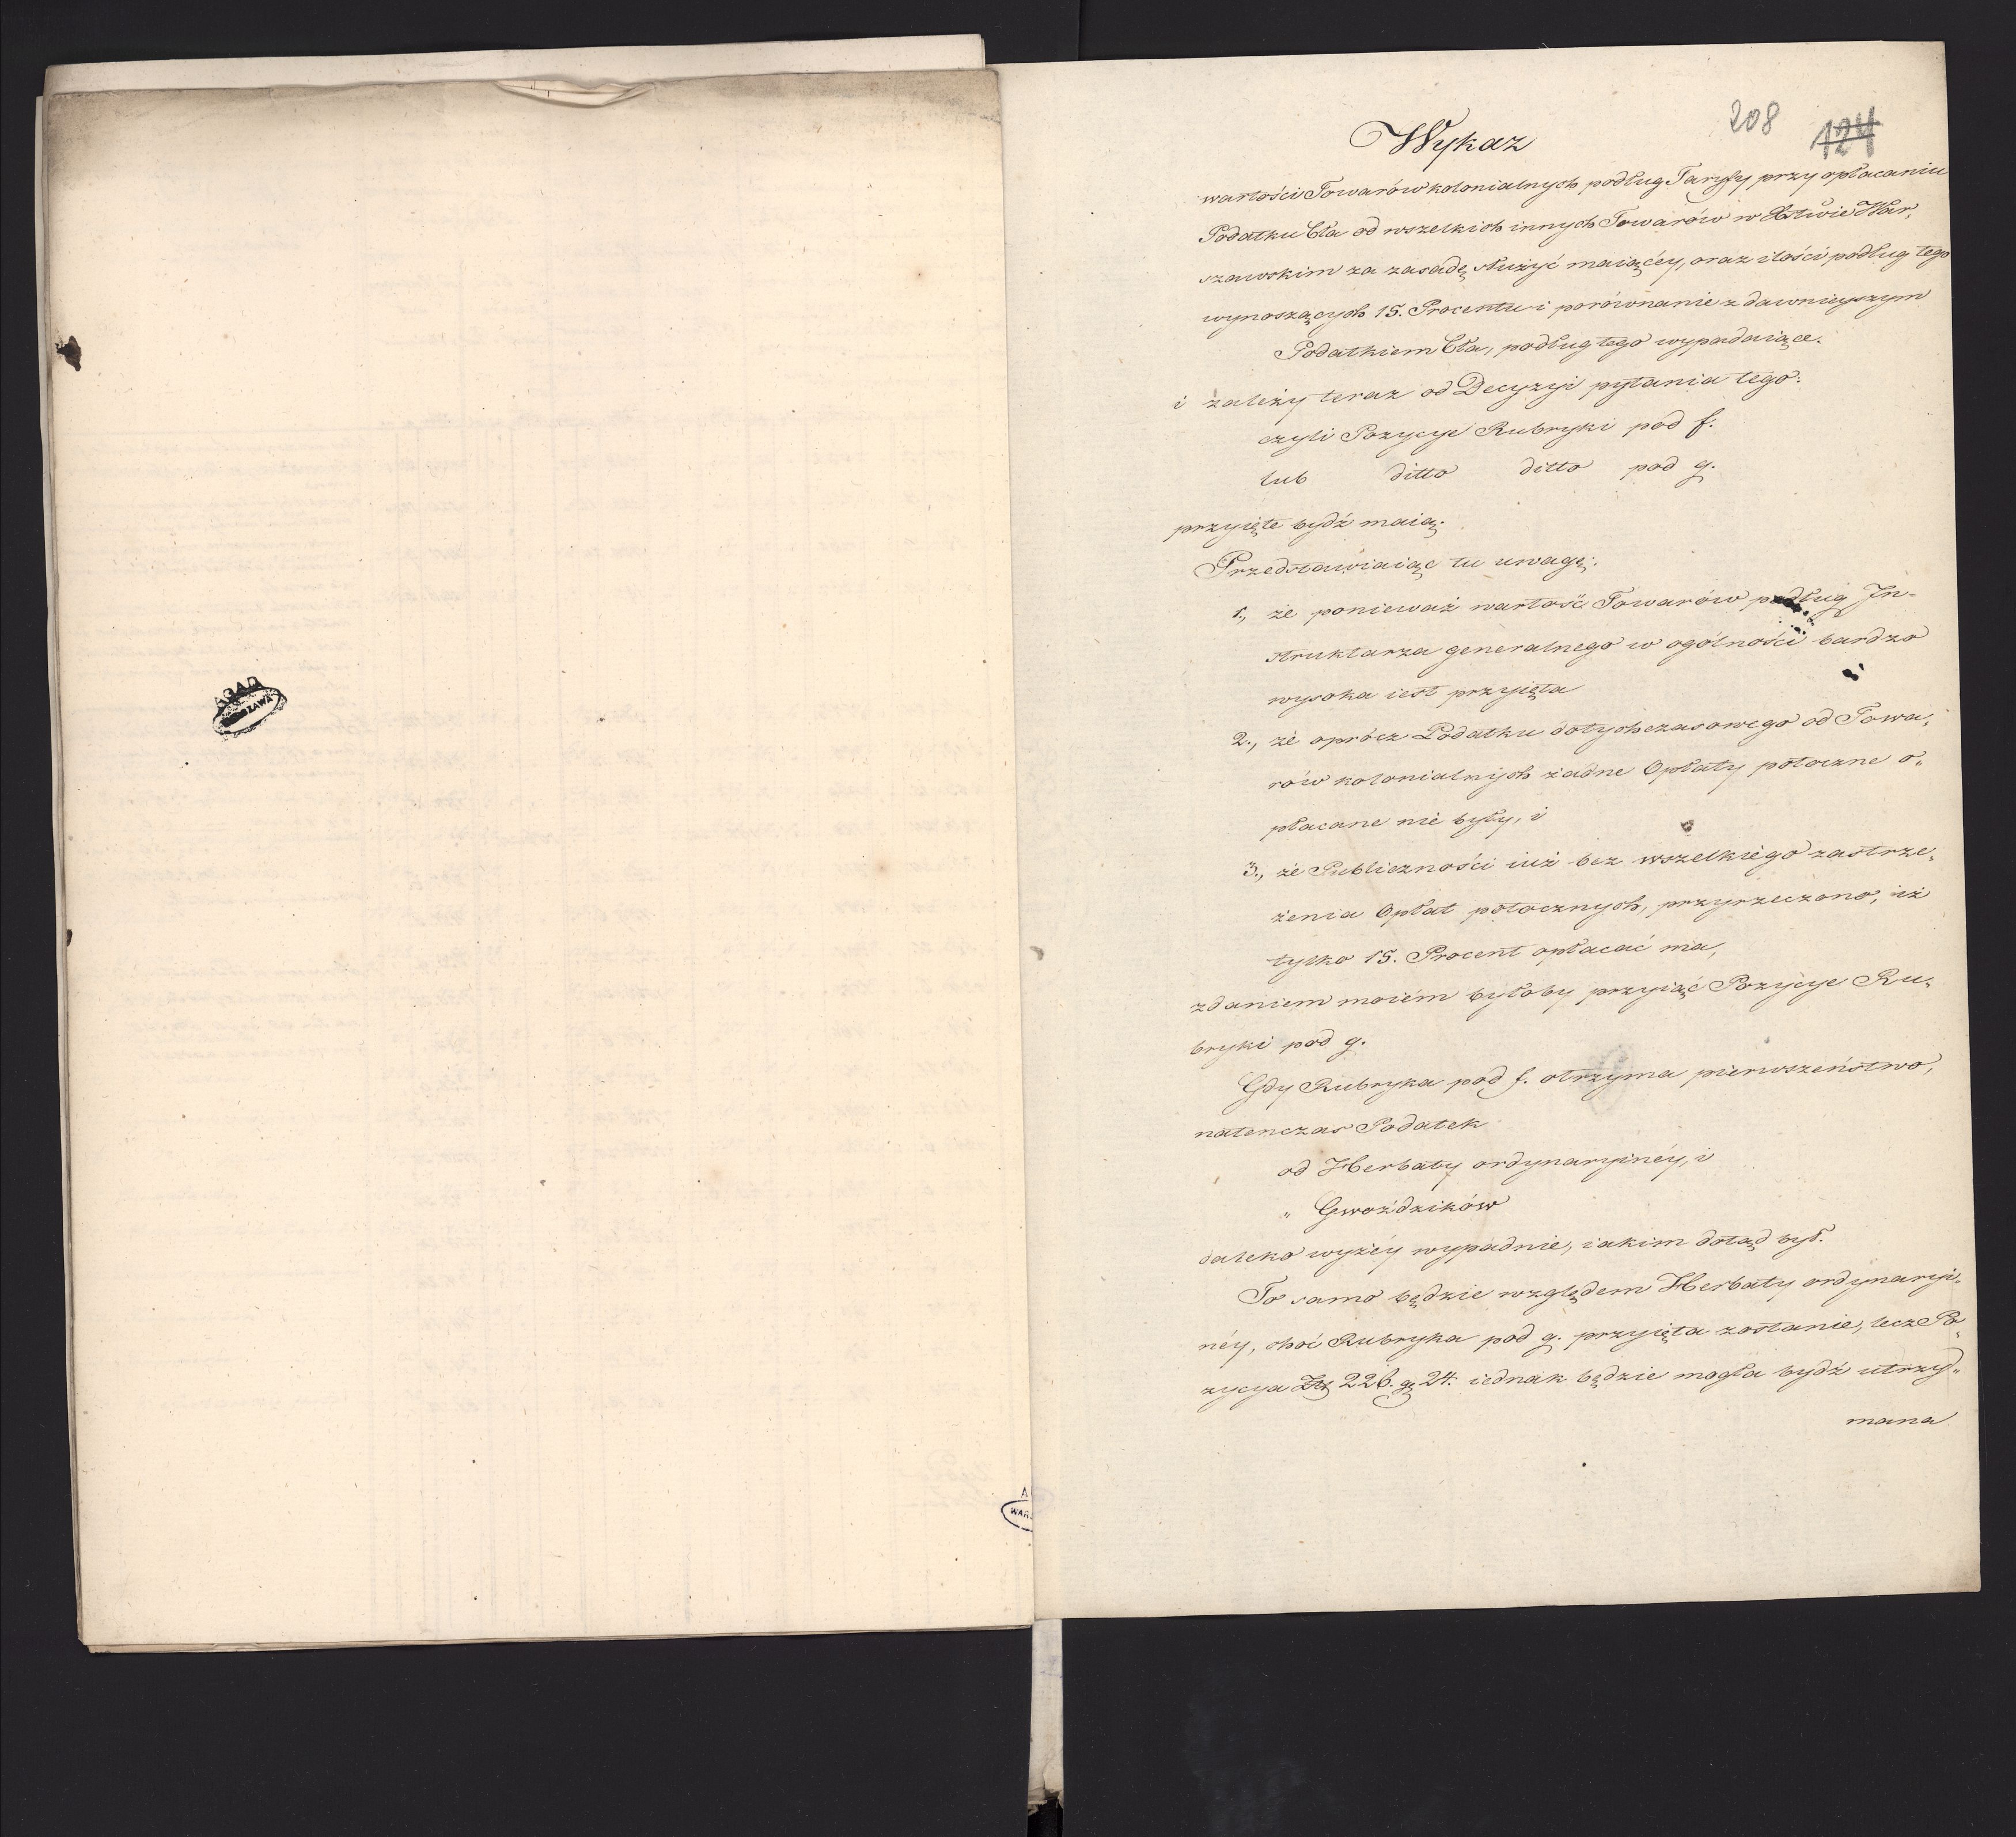 AGAD
WARSZAWA
208
124
Wykaz
wartości Towarów kolonialnych podług Taryfy przy opłacaniu
Podatku Cła od wszelkich innych Towarów w Xstwie War„
szawskim za zasadę służyć maiącéy, oraz ilości podług tego
wynoszących 15. Procentu i porównanie z dawnieyszym
Podatkiem Cła, podług tego wypadaiące.
i zależy teraz od Decyzyi pytania tego:
czyli Pozycye Rubryki pod f.
lub ditto ditto pod g.
przyięte bydź maią.
Przedstawiaiąc tu uwagę:
1., że ponieważ wartość Towarów podług In-
struktarza generalnego w ogólności bardzo
wysoka iest przyięta
2., że oprócz Podatku dotychczasowego od Towa„
rów kolonialnych żadne Opłaty potoczne o„
płacane nie były, i
3., że Publiczności iuż bez wszelkiego zastrze„
żenia Opłat potocznych, przyrzeczono, iż
tylko 15. Procent opłacać ma,
zdaniem moiém byłoby przyiąć Pozycye Ru„
bryki pod g.
Gdy Rubryka pod f. otrzyma pierwszeństwo,
natenczas Podatek
od Herbaty ordynaryinéy, i
„ Gwoździków
daleko wyżéy wypadnie, iakim dotąd był.
To samo będzie względem Herbaty ordynaryi„
néy, choć Rubryka pod g. przyięta zostanie, lecz Po„
zycya Zł 226. gr 24. iednak będzie mogła bydź utrzy„
mana
A
WAR